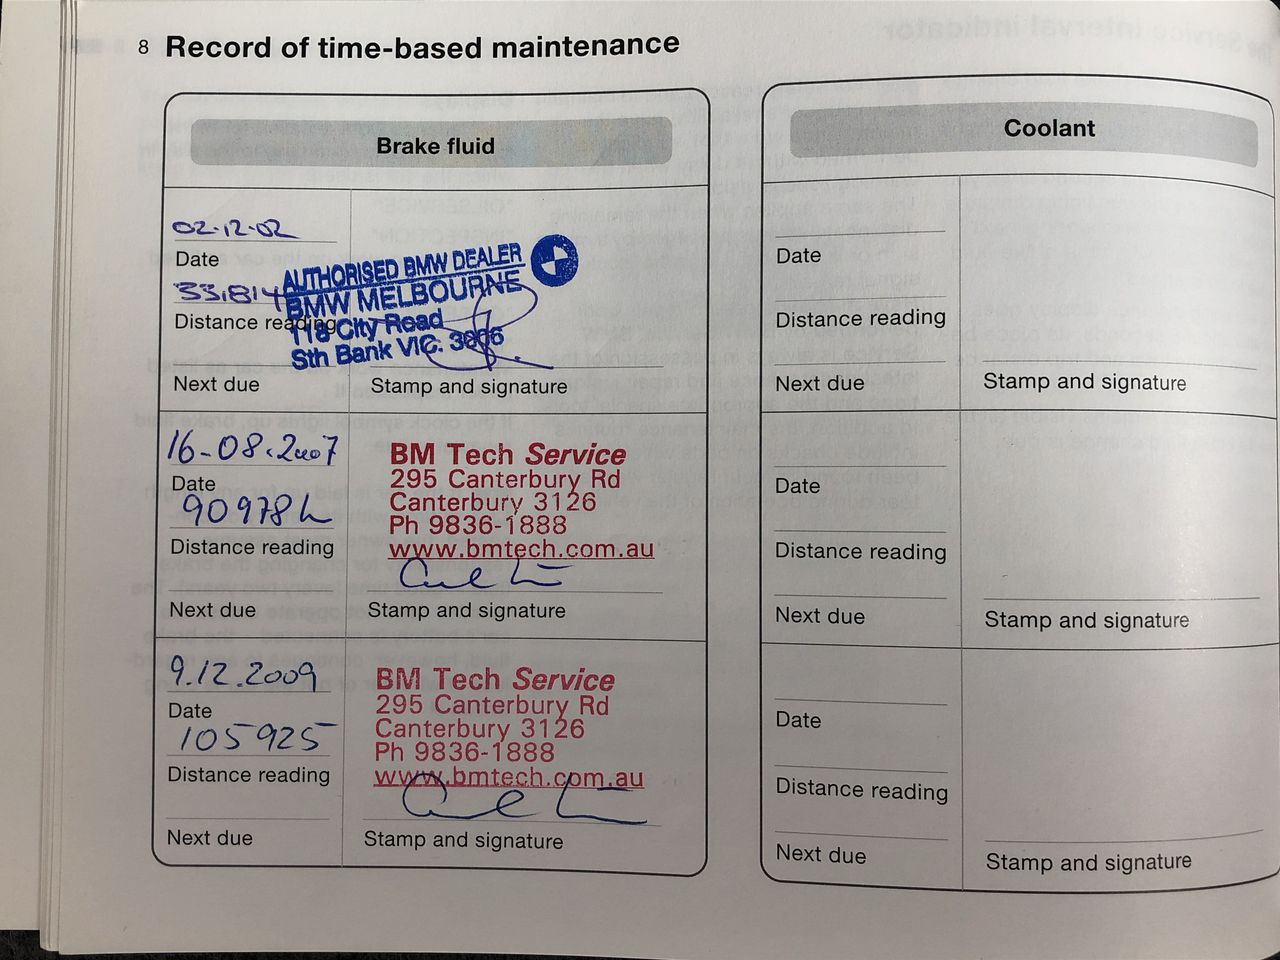 8 Record of time-based maintenance
Brake fluid
02.12.02
Date
33,814
Distance reading
Next due
AUTHORISED BMW DEALER
BMW MELBOURNE
118 City Road
Sth Bank VIC. 3006
Stamp and signature
16-08.2007
Date
90978
Distance reading
Next due
BM Tech Service
295 Canterbury Rd
Canterbury 3126
Ph 9836-1888
www.bmtech.com.au
Stamp and signature
9.12.2009
Date
105925
Distance reading
Next due
BM Tech Service
295 Canterbury Rd
Canterbury 3126
Ph 9836-1888
www.bmtech.com.au
Stamp and signature
Coolant
Date
Distance reading
Next due
Stamp and signature
Date
Distance reading
Next due
Stamp and signature
Date
Distance reading
Next due
Stamp and signature